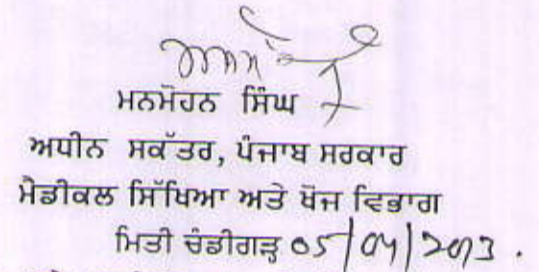 ਮਨਮੋਹਨ ਸਿੰਘ
ਅਧੀਨ ਸਕੱਤਰ, ਪੰਜਾਬ ਸਰਕਾਰ
ਮੈਡੀਕਲ ਸਿੱਖਿਆ ਅਤੇ ਖੋਜ ਵਿਭਾਗ
ਮਿਤੀ ਚੰਡੀਗੜ੍ਹ 05/04/2013.